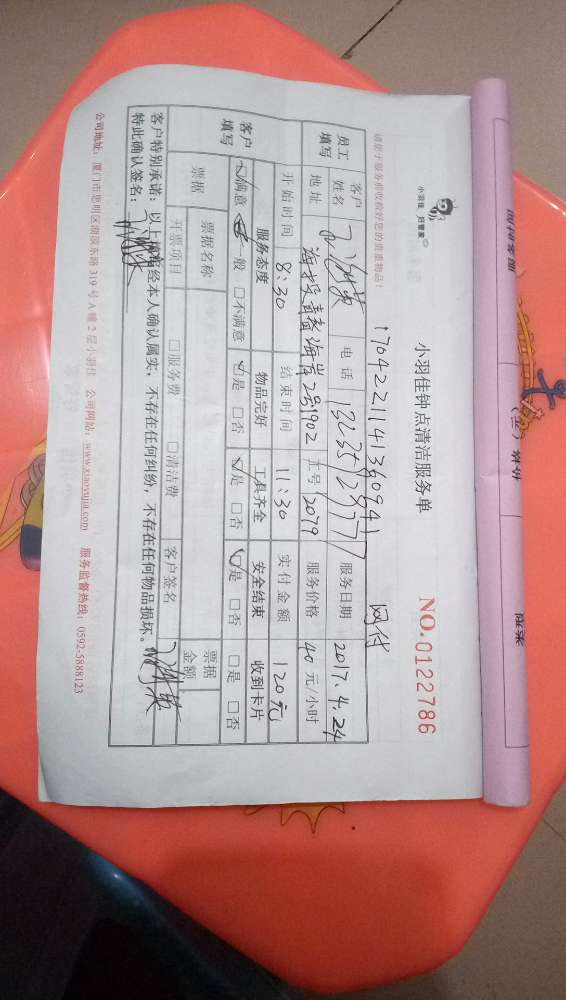 小羽佳 好管家
小羽佳钟点清洁服务单
NO.0122786
请您于服务前收捡好您的贵重物品!
网付
员工填写
客户姓名
电话
服务日期 2017.4.24
地址 海投青春海岸2号1902
工号 2079
服务价格 40元/小时
开始时间 8:30
结束时间 11:30
实付金额 120元
客户填写
服务态度 物品完好 工具齐全 安全结束 收到卡片
☑满意 一般 □不满意 ☑是 □否 ☑是 □否 ☑是 □否 □是 □否
票据
票据名称
票据金额
开票项目 □服务费 □清洁费 客户签名
客户特别承诺:以上填写经本人确认属实,不存在任何纠纷,不存在任何物品损坏。
特此确认签名:
公司地址:厦门市思明区湖滨东路319号A幢2层小羽佳 公司网站:www.xiaoyujia.com 服务监督热线:0592-5888123